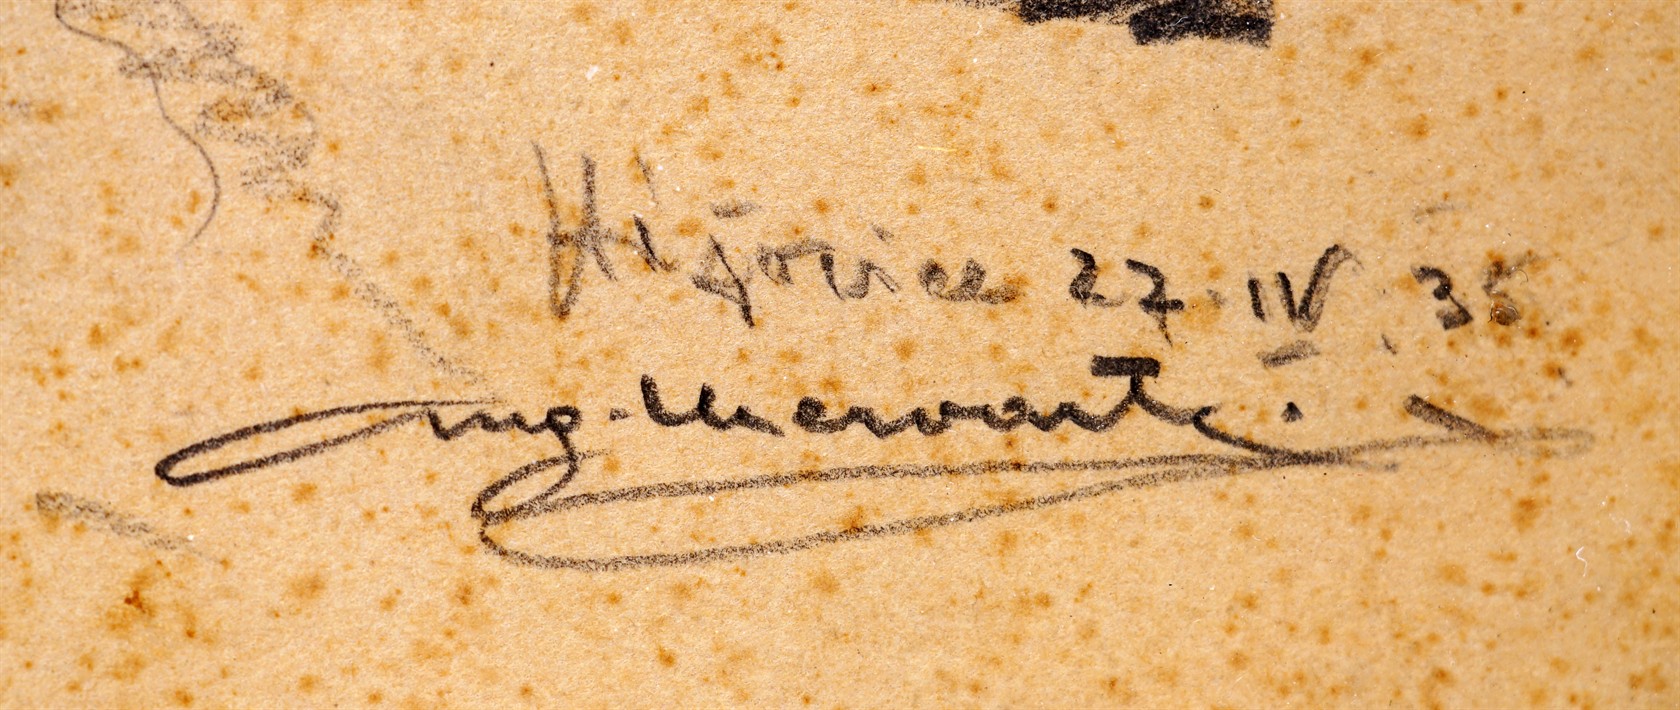 27. IV. 35
Aug. Mervart.